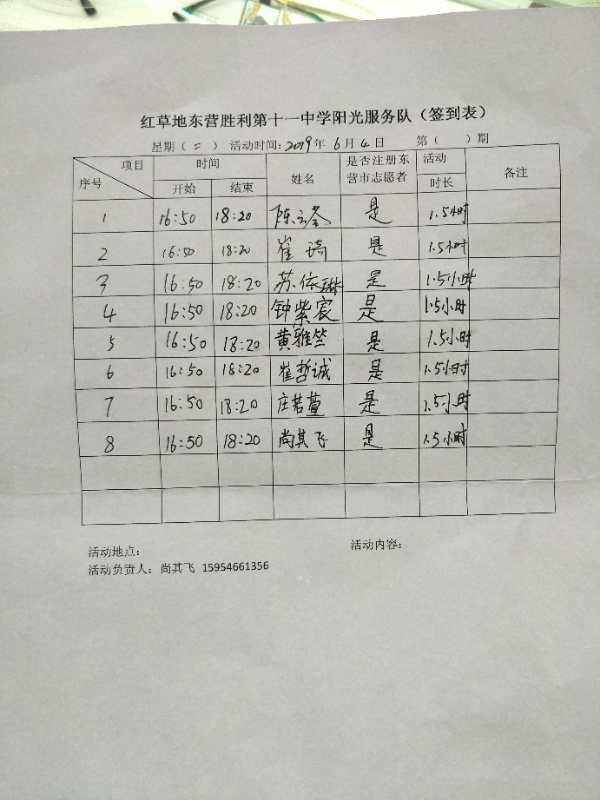 红草地东营胜利第十一中学阳光服务队（签到表）
星期（二） 活动时间：2019年6月4日 第（ ）期
项目 序号 时间 姓名 是否注册东营市志愿者 活动 备注
开始 结束 时长
1 16:50 18:20 陈 是 1.5小时
2 16:50 18:20 崔琦 是 1.5小时
3 16:50 18:20 苏依琳 是 1.5小时
4 16:50 18:20 钟紫宸 是 1.5小时
5 16:50 18:20 黄雅竺 是 1.5小时
6 16:50 18:20 崔哲诚 是 1.5小时
7 16:50 18:20 庄若萱 是 1.5小时
8 16:50 18:20 尚其飞 是 1.5小时
活动地点： 活动内容：
活动负责人：尚其飞 15954661356